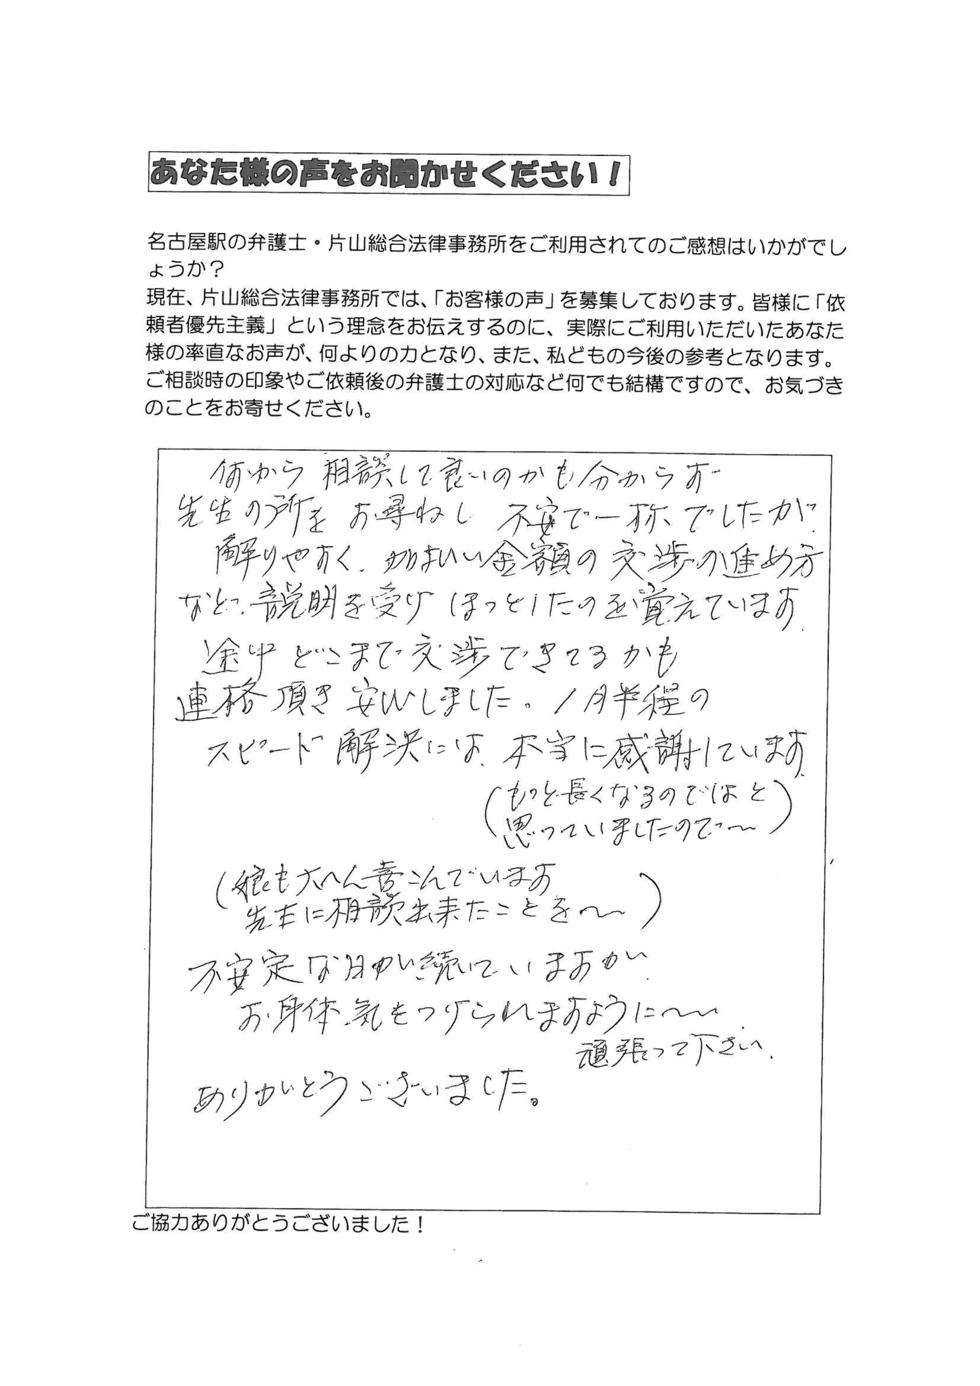 あなた様の声をお聞かせください！
名古屋駅の弁護士・片山総合法律事務所をご利用されてのご感想はいかがでし
ょうか？
現在、片山総合法律事務所では、「お客様の声」を募集しております。皆様に「依
頼者優先主義」という理念をお伝えするのに、実際にご利用いただいたあなた
様の率直なお声が、何よりの力となり、また、私どもの今後の参考となります。
ご相談時の印象やご依頼後の弁護士の対応など何でも結構ですので、お気づき
のことをお寄せください。
何から相談して良いのかも分からず
先生の所をお尋ねし 不安で一杯でしたが
解りやすく、かばらい金額の交渉の進め方
など、説明を受け ほっとしたのを覚えています
途中どこまで交渉できてるかも
連絡頂き安心しました。1月半程の
スピード解決には、本当に感謝しています
（もっと長くなるのではと
思っていましたので〜）
（娘も大へん喜こんでいます
先生に相談出来たことを〜）
不安定な日が続いていますが
お身体、気をつけられますように〜
頑張って下さい、
ありがとうございました。
ご協力ありがとうございました！